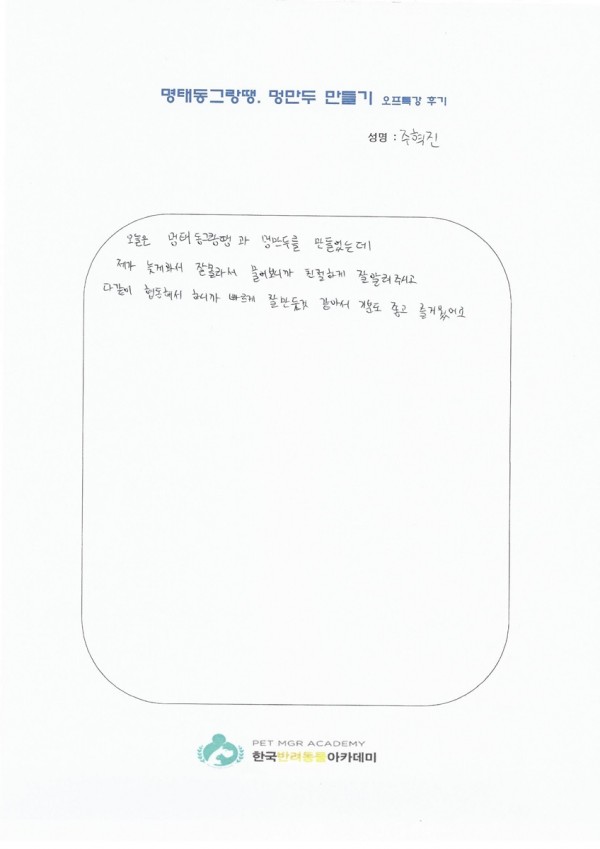 명태동그랑땡. 멍만두 만들기 오프특강 후기
성명 : 주혁진
오늘은 명태동그랑땡과 멍만두를 만들었는데
제가 늦게와서 잘몰라서 물어보니까 친절하게 잘알려주시고
다같이 협동해서 하니까 빠르게 잘만든것 같아서 기분도 좋고 즐거웠어요
PET MGR ACADEMY
한국반려동물아카데미